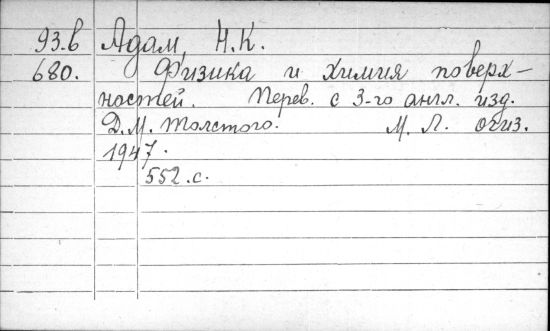 93.в Адам, Н.К.
680. Физика и химия поверх-
ностей. Перев. с 3-го англ. изд.
Д.М. Толстого. М. Л. огиз.
1947.
552.с.